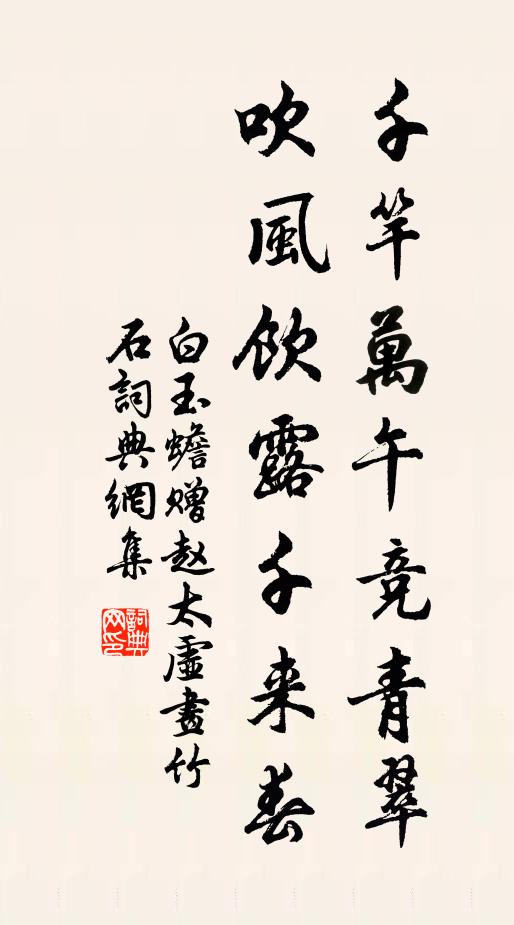 千竿萬午竞青翠
吹風飲露千来春
白玉蟾赠赵太虛畫竹
石詞典網集
詞典網印